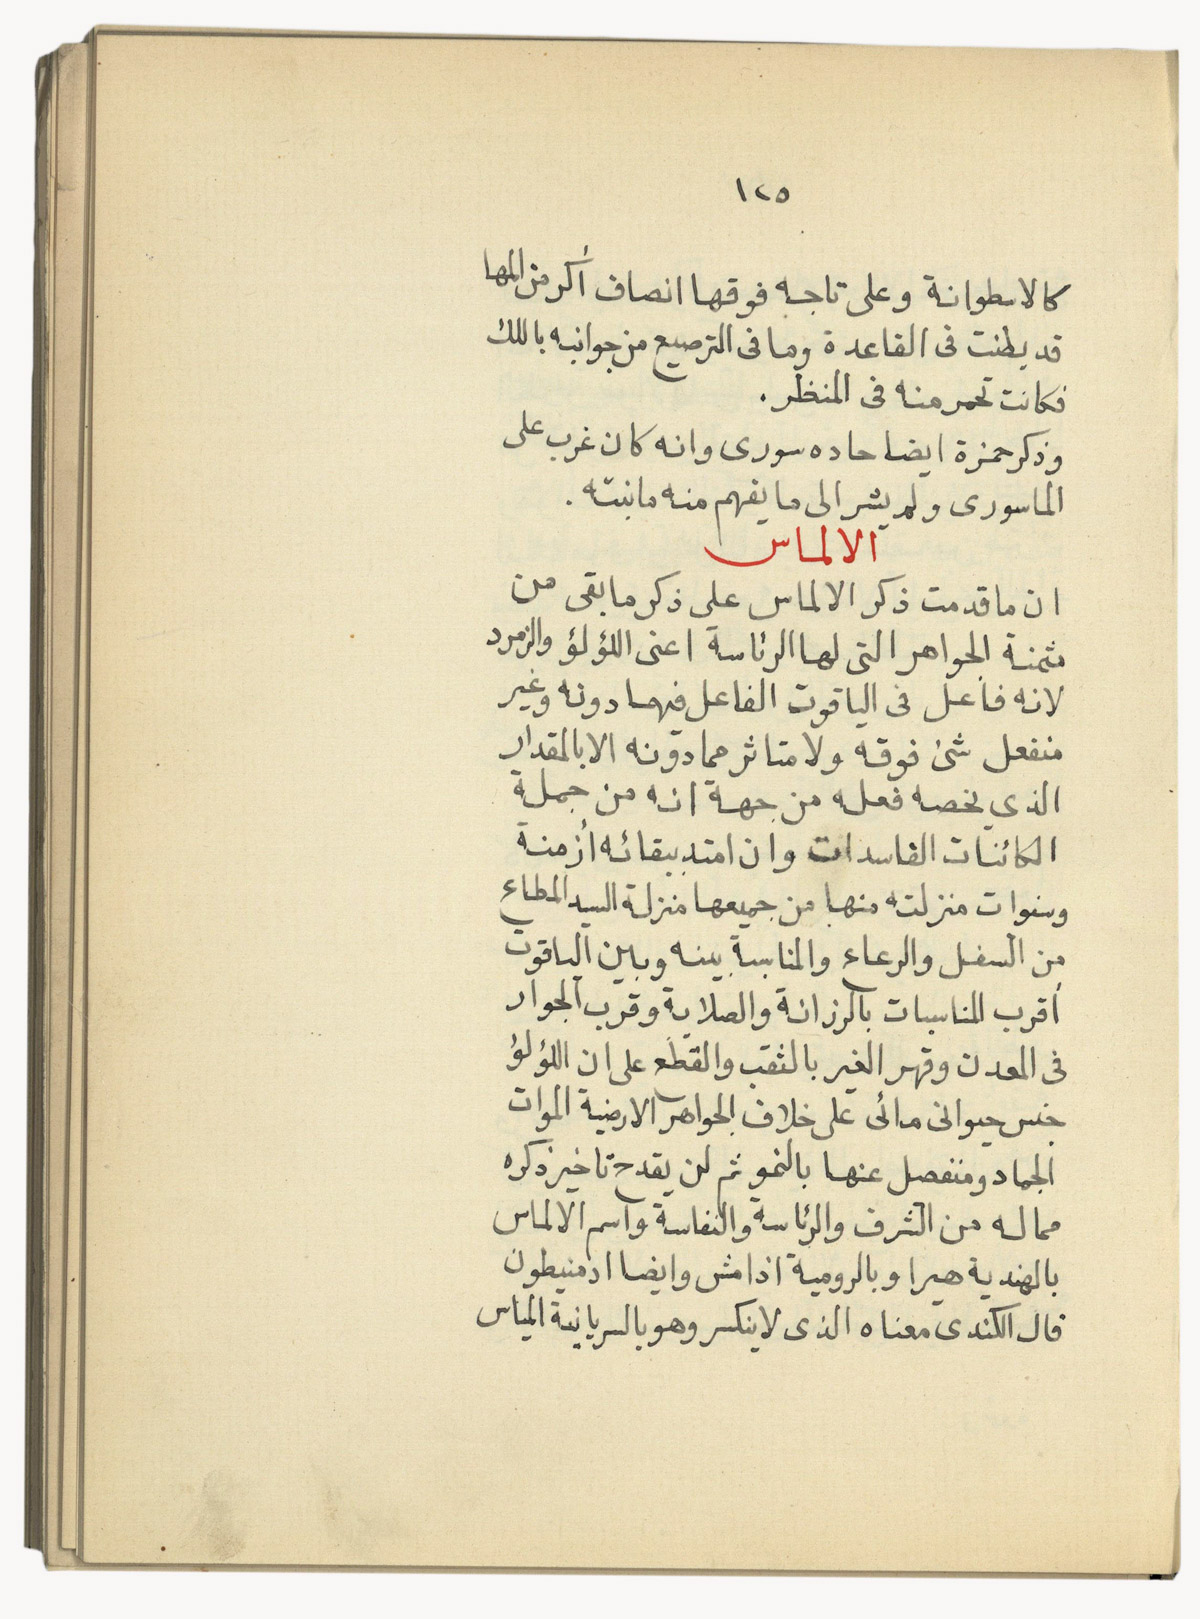 ١٢٥
كالاسطوانة وعلى تاجه فوقها انصاف أكر من المها
قد بطنت فى القاعدة وما فى الترصيع من جوانبه باللك
فكانت تحمر منه فى المنظر .
وذكر حمزة ايضا حاده سورى وانه كان غرب على
الماسورى ولم يشر الى ما يفهم منه ما نبته .
الالماس
ان ما قدمت ذكر الالماس على ذكر ما بقى من
مثمنة الجواهر التى لها الرئاسة اعنى اللؤلؤ والزمرد
لانه فاعل فى الياقوت الفاعل فيما دونه وغير
منفعل شئ فوقه ولا متاثر مما دونه الا بالمقدار
الذي يخصه فعله من جهة انه من جملة
الكائنات الفاسدات وان امتد ببقائه أزمنة
وسنوات منزلته منها من جميعها منزلة السيد المطاع
من السفل والرعاع والمناسبة بينه وبين الياقوت
أقرب المناسبات بالرزانة والصلابة وقرب الجوار
فى المعدن وقهر الغير بالثقب والقطع على ان اللؤلؤ
جنس حيوانى مائى على خلاف الجواهر الارضية الموات
الجماد ومنفصل عنها بالنمو ثم لن يقدح تاخير ذكره
مما له من الشرف والرئاسة والنفاسة واسم الالماس
بالهندية هيرا وبالرومية اذامش وايضا ادمنيطون
قال الكندى معناه الذى لا ينكسر وهو بالسريانية المياس